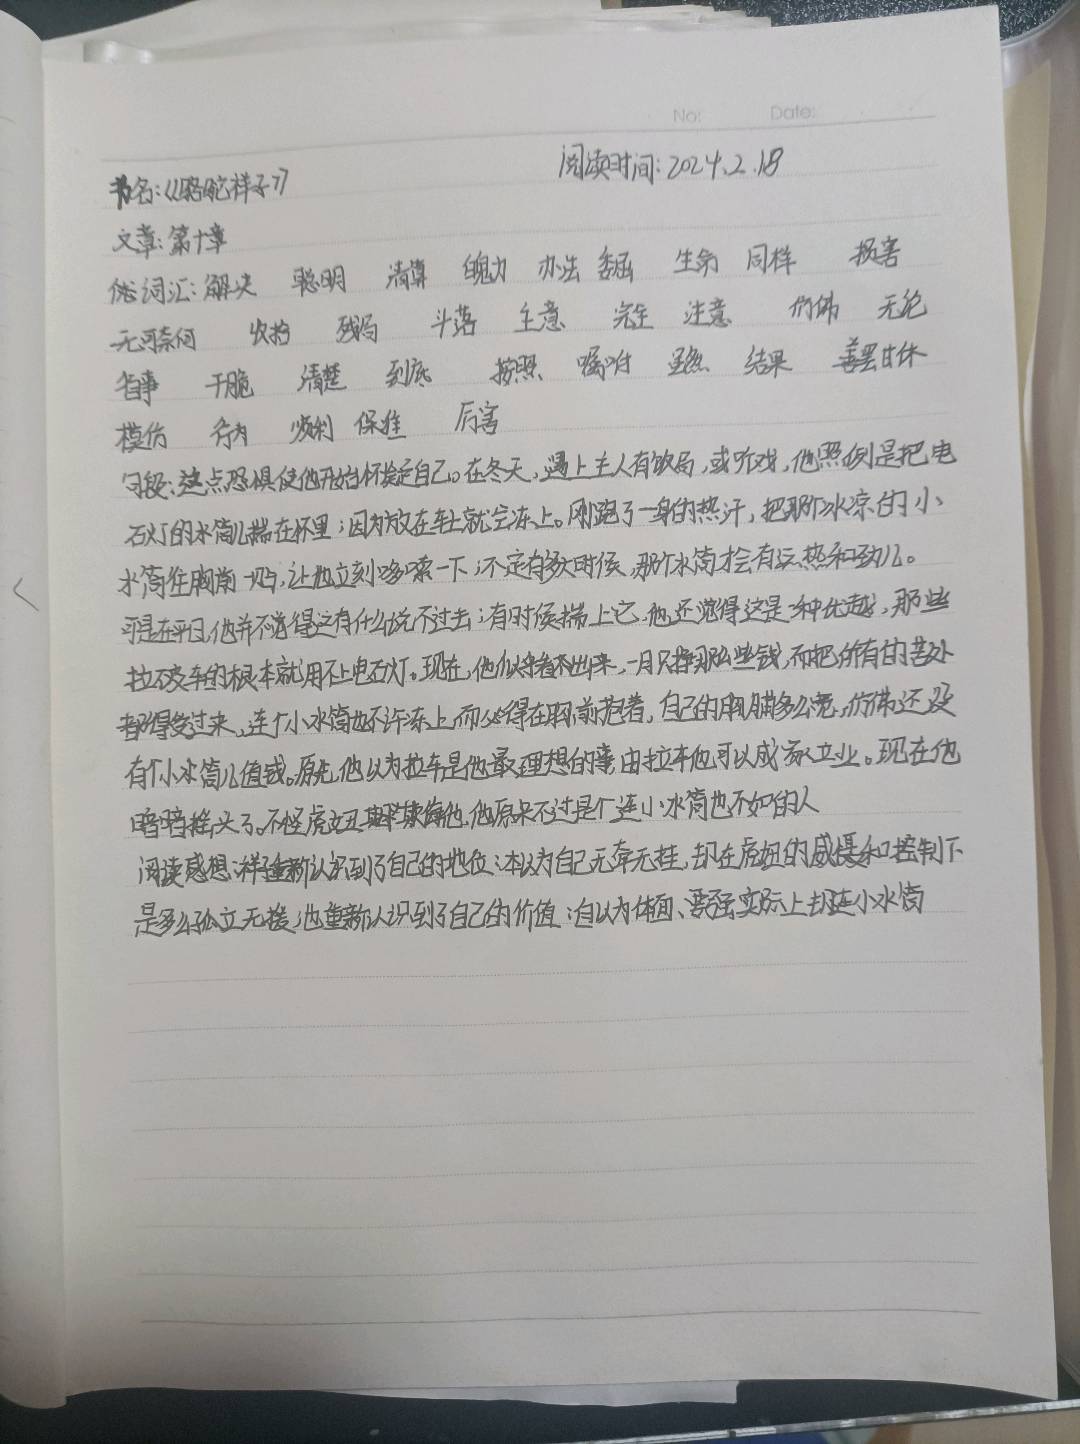 No: Date:
书名:《骆驼祥子》 阅读时间:2024.2.18
文章:第十章
词汇:解决 聪明 清算 魄力 办法 委屈 生命 同样 损害
无可奈何 收拾 残局 斗落 主意 完全 注意 仿佛 无论
省事 干脆 清楚 到底 按照 嘱咐 虽然 结果 善罢甘休
模仿 行为 顺利 保准 厉害
句段:这点恐惧使他开始怀疑自己。在冬天,遇上主人有饭局,或听戏,他照例是把电
石灯的水筒儿揣在怀里;因为放在车上就会冻上。刚跑了一身的热汗,把那个冰凉的小
水筒往胸前一贴,让他立刻哆嗦一下;不定有多大时候,那个水筒才会有点热和劲儿。
可是在平日,他并不觉得这有什么说不过去;有时候揣上它,他还觉得这是一种优越,那些
拉破车的根本就用不上电石灯。现在,他似乎看出来,一月只挣那么些钱,而把所有的苦处
都得受过来,连个小水筒也不许冻上,而必得在胸前抱着,自己的胸脯多么宽,仿佛还没
有个小水筒儿值钱。原先,他以为拉车是他最理想的事,由拉车他可以成家立业。现在他
暗暗摇头了。不怪虎妞欺侮他,他原来不过是个连小水筒也不如的人
阅读感想:祥子重新认识到了自己的地位:本以为自己无牵无挂,却在虎妞的威慑和控制下
是多么孤立无援;他重新认识到了自己的价值:自以为体面、要强实际上却连小水筒